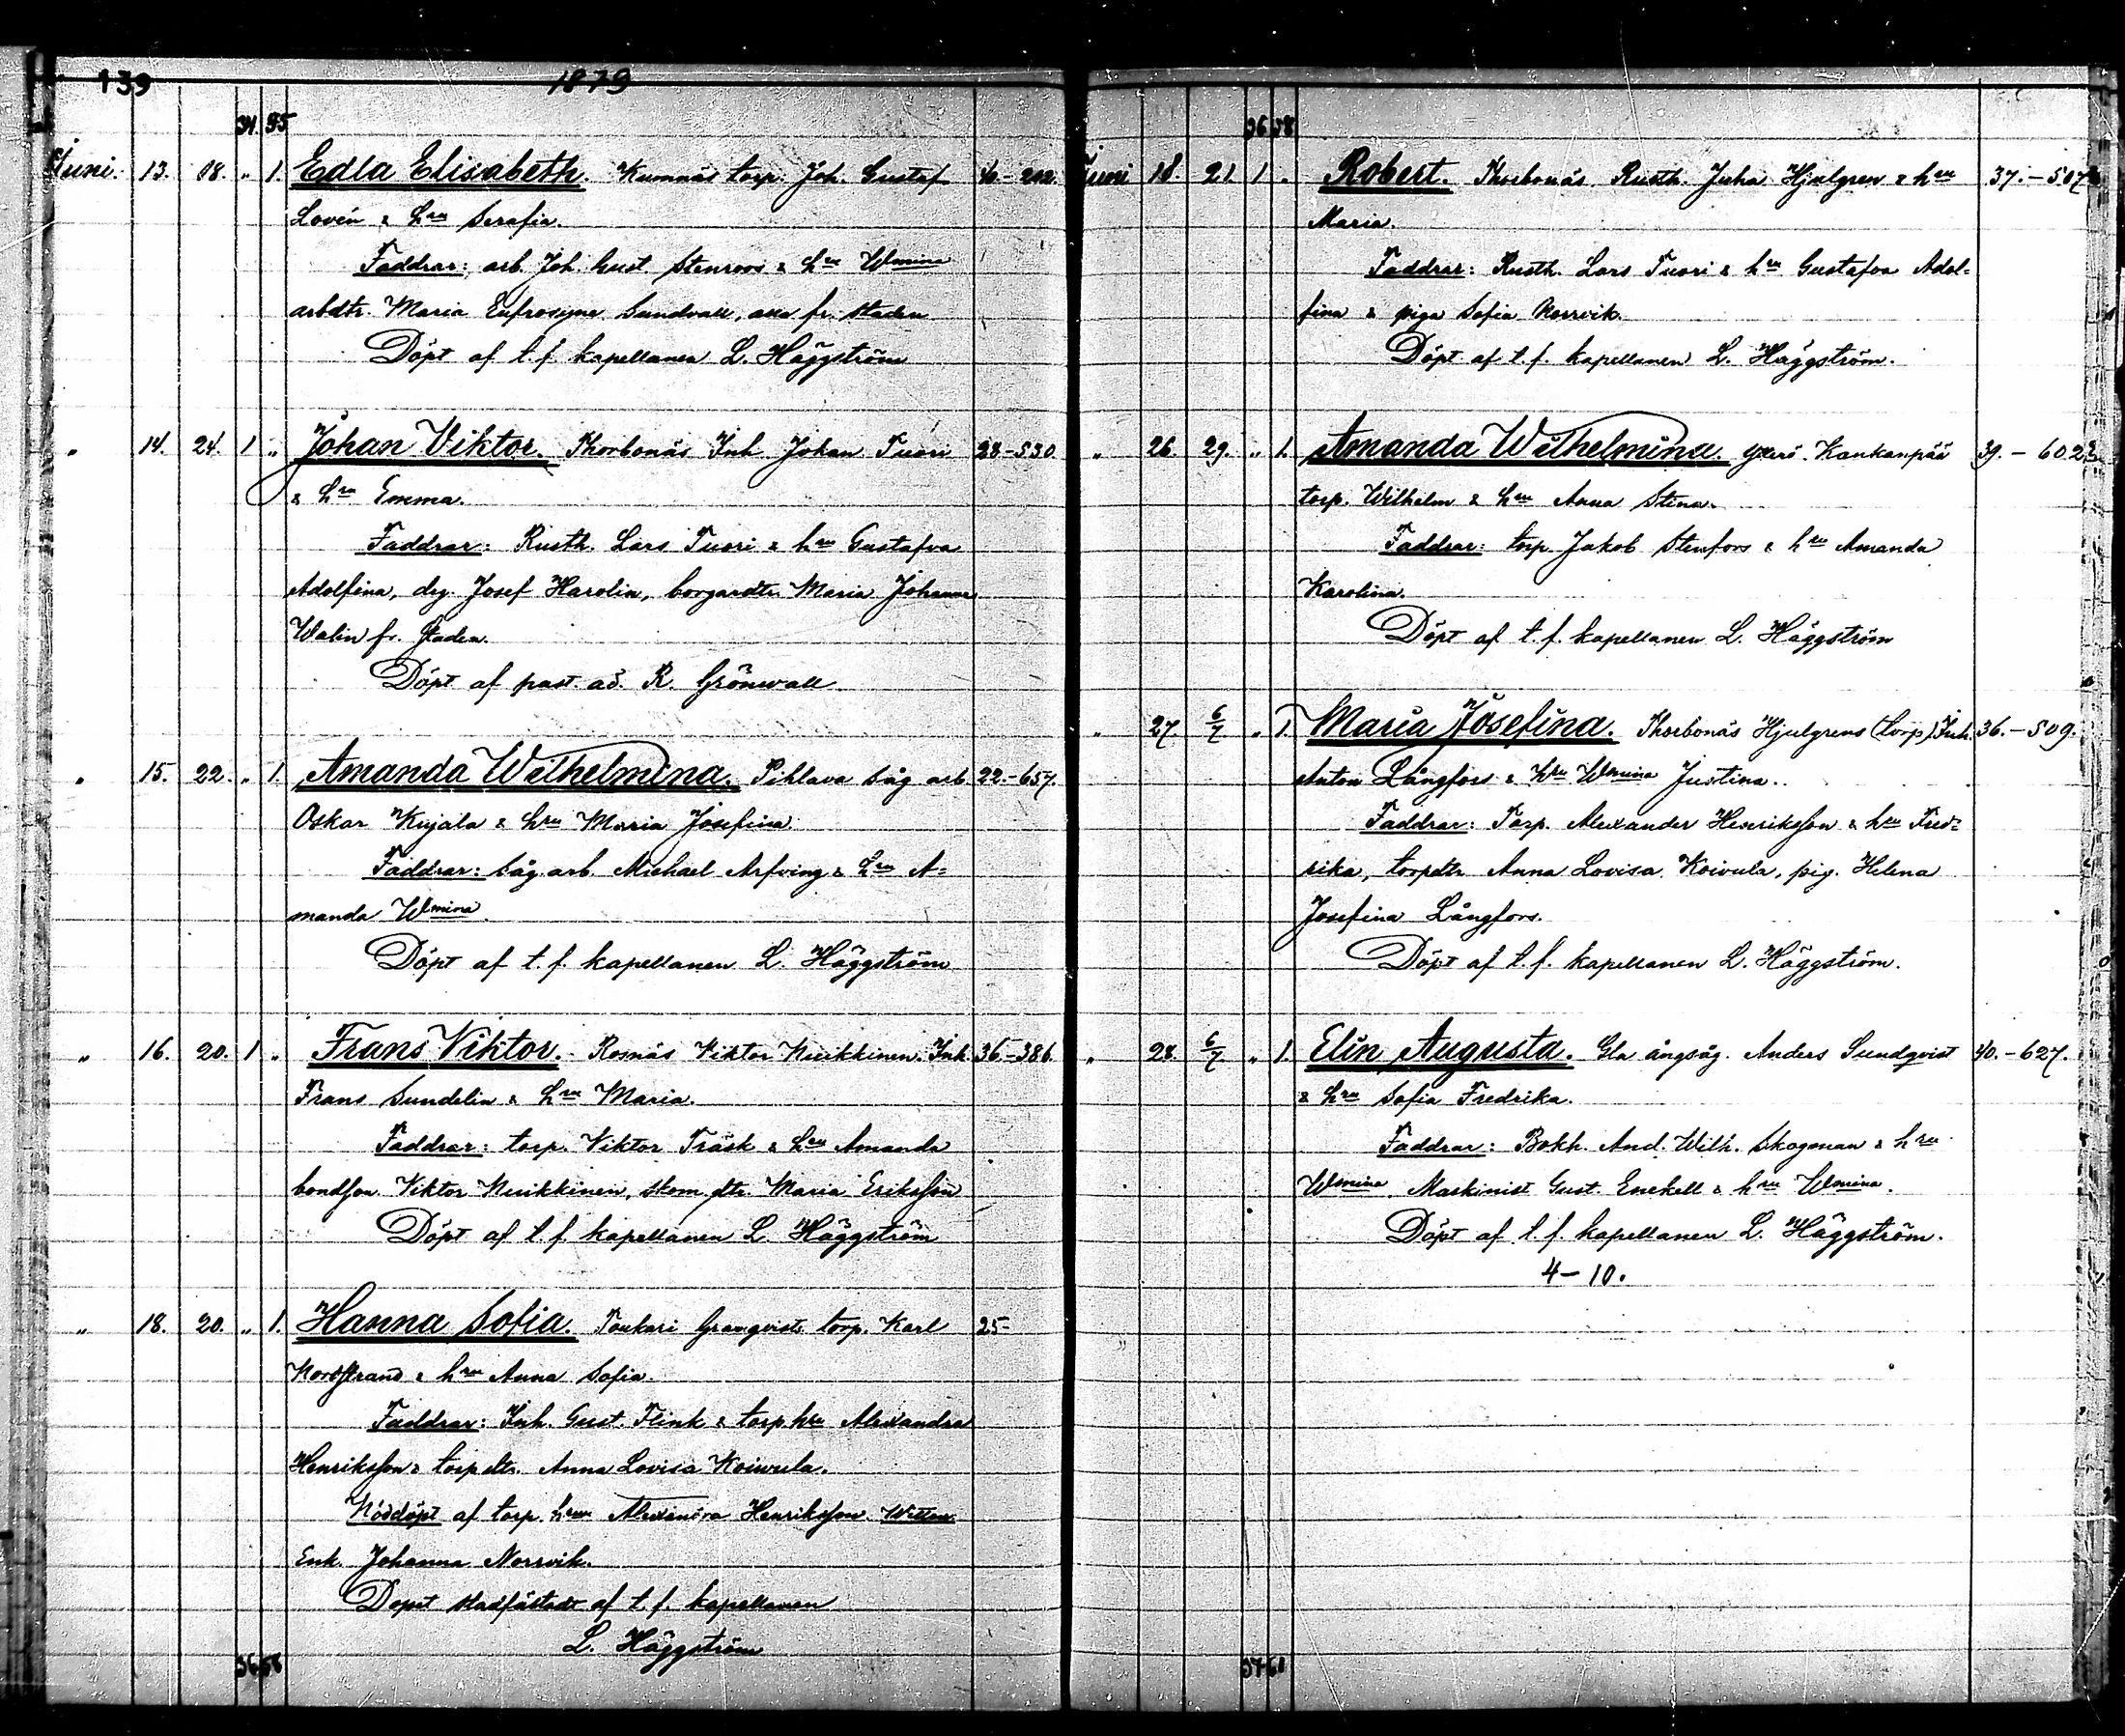 139 1879
34 55
Juni. 13. 18. " 1. Edla Elisabeth. Kumnäs torp. Joh. Gustaf 40-202.
Lovén & hru Serafia.
Faddrar: arb. Joh. Gust. Stenroos & hru Wmina
arbdtr. Maria Eufrosyne Sundvall, alla fr. staden
Döpt af t. f. kapellanen L. Häggström
" 14. 24. 1 " Johan Viktor. Thorbonäs Inh. Johan Tuori 28-530.
& hru Emma.
Faddrar: Rusth. Lars Tuori & hru Gustafva
Adolfina, drg. Josef Harolin, borgaredtr. Maria Johanna
Walin fr. staden.
Döpt af past. ad. R. Grönvall
" 15. 22. " 1. Amanda Wilhelmina. Pihlava såg arb. 22-657.
Oskar Kujala & hru Maria Josefina.
Faddrar: såg.arb. Michael Arfving & hru A=
manda Wmina.
Döpt af t. f. kapellanen L. Häggström
" 16. 20. 1 " Frans Viktor. Rosnäs Viktor Nuikkinen. Inh. 36.-386.
Frans Sundelin & hru Maria.
Faddrar: torp. Viktor Träsk & hru Amanda
bondson Viktor Nuikkinen, skom. dtr. Maria Eriksson
Döpt af t. f. kapellanen L. Häggström
" 18. 20. " 1. Hanna Sofia. Toukari Granqvists torp. Karl 25-
Nordstrand & hru Anna Sofia.
Faddrar: Inh. Gust. Flink & torp.hru Alexandra
Henriksson & torpdtr. Anna Lovisa Koivula.
Nöddöpt af torp. hru Alexandra Henriksson. Wittne
Enk. Johanna Norrvik.
Dopet stadfästadt af t. f. kapellanen
L. Häggström
36 58
36 58
Juni 18. 21. 1 " Robert. Thorbonäs Rusth. Juha Hjulgren & hru 37.-507
Maria.
Faddrar: Rusth. Lars Tuori & hru Gustafva Adol=
fina & piga Sofia Norrvik.
Döpt af t. f. kapellanen L. Häggström.
" 26. 29. " 1. Amanda Wilhelmina. Yterö Kankanpää 39.-602
torp. Wilhelm & hru Anna Stina.
Faddrar: torp. Jakob Stenfors & hru Amanda
Karolina.
Döpt af t. f. kapellanen L. Häggström
" 27. 6/7 " 1. Maria Josefina. Thorbonäs Hjulgrens (torp) Inh. 36.-509.
Anton Långfors & hru Wmina Justina.
Faddrar: Torp. Alexander Henriksson & hru Fred=
rika, torpdtr. Anna Lovisa Koivula, pig. Helena
Josefina Långfors.
Döpt af t. f. kapellanen L. Häggström.
" 28. 6/7 " 1. Elin Augusta. Gla ångsåg. Anders Sundqvist 40.-627.
& hru Sofia Fredrika.
Faddrar: Bokh. And. Wilh. Skogman & hru
Wmina. Maskinist Gust. Enckell & hru Wmina.
Döpt af t. f. kapellanen L. Häggström.
4-10.
37 61